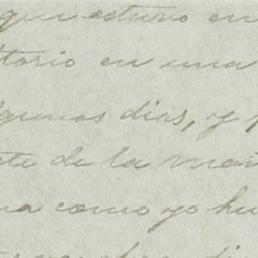 que estuvo en
torio en una
algunos dias, y p
te de la mañ
na como yo hu